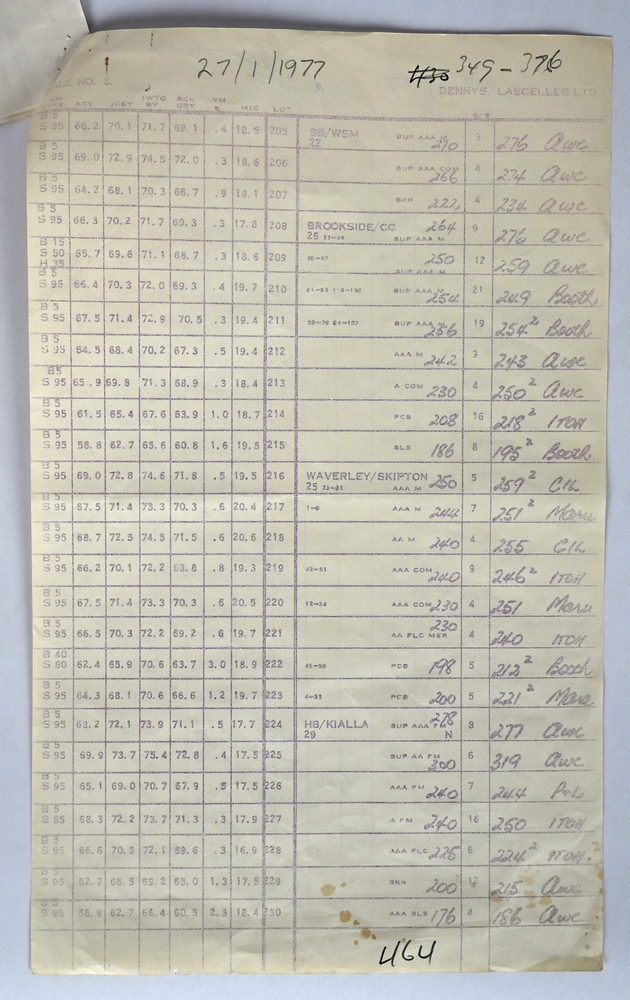 27/1/1977 349-376
SALE NO. 5. 9. DENNYS, LASCELLES LTD
ACY JCBY IWTO BY SCH DRY VM % MIC LOT B/S
B 5
S 95 66.2 70.1 71.7 69.1 .4 18.5 205 SB/WSM 22 SUP AAA M 270 3 276 Awc
B 5
S 95 69.0 72.9 74.5 72.0 .3 18.6 206 SUP AAA COM 266 4 274 Awc
B 5
S 95 64.2 68.1 70.3 66.7 .9 18.1 207 BKN 222 4 234 Awc
B 5
S 95 66.3 70.2 71.7 69.3 .3 17.8 208 BROOKSIDE/CC 26 SUP AAA M 264 9 276 Awc
B 15
S 50 65.7 69.6 71.1 68.7 .3 18.6 209 SUP AAA M 250 12 259 Awc
H 35
B 5
S 95 66.4 70.3 72.0 69.3 .4 19.7 210 SUP AAA M 254 21 249 Booth
B 5
S 95 67.5 71.4 72.9 70.5 .3 19.4 211 SUP AAA M 256 19 254² Booth
B 5
S 95 64.5 68.4 70.2 67.3 .5 19.4 212 AAA M 242 3 243 Awc
B 5
S 95 65.9 69.8 71.3 68.9 .3 18.4 213 A COM 230 4 250² Awc
B 5
S 95 61.5 65.4 67.6 63.9 1.0 18.7 214 PCS 208 16 218² ITOH
B 5
S 95 58.8 62.7 65.6 60.8 1.6 19.5 215 BLS 186 8 195² Booth
B 5
S 95 69.0 72.8 74.6 71.8 .5 19.5 216 WAVERLEY/SKIPTON 25 23-31 AAA M 250 5 259² CIL
B 5
S 95 67.5 71.4 73.3 70.3 .6 20.4 217 AAA M 244 7 251² Maru
B 5
S 95 68.7 72.5 74.5 71.5 .6 20.6 218 AA M 240 4 255 CIL
B 5
S 95 66.2 70.1 72.2 68.8 .8 19.3 219 AAA COM 240 9 246² ITOH
B 5
S 95 67.5 71.4 73.3 70.3 .6 20.5 220 AAA COM 230 4 251 Maru
B 5
S 95 66.5 70.3 72.2 69.2 .6 19.7 221 AA FLC MER 230 4 240 ITOH
B 40
S 60 62.4 65.9 70.6 63.7 3.0 18.9 222 PCS 198 5 212² Booth
B 5
S 95 64.3 68.1 70.6 66.6 1.2 19.7 223 PCS 200 5 221² Maru
B 5
S 95 68.2 72.1 73.9 71.1 .5 17.7 224 HB/KIALLA 29 SUP AAA FM N 278 8 277 Awc
B 5
S 95 69.9 73.7 75.4 72.8 .4 17.5 225 SUP AA FM 300 6 319 Awc
B 5
S 95 65.1 69.0 70.7 67.9 .5 17.5 226 AAA FM 240 7 244
B 5
S 95 68.3 72.2 73.7 71.3 .3 17.9 227 A FM 240 16 250 ITOH
B 5
S 95 66.6 70.5 72.1 69.6 .3 16.9 228 AAA FLC 225 6 224² ITOH
B 5
S 95 62.7 66.5 69.2 65.0 1.3 17.5 229 BKN 200 12 215 Awc
B 5
S 95 58.9 62.7 66.4 60.5 2.3 18.4 230 AAA BLS 176 4 186 Awc
464